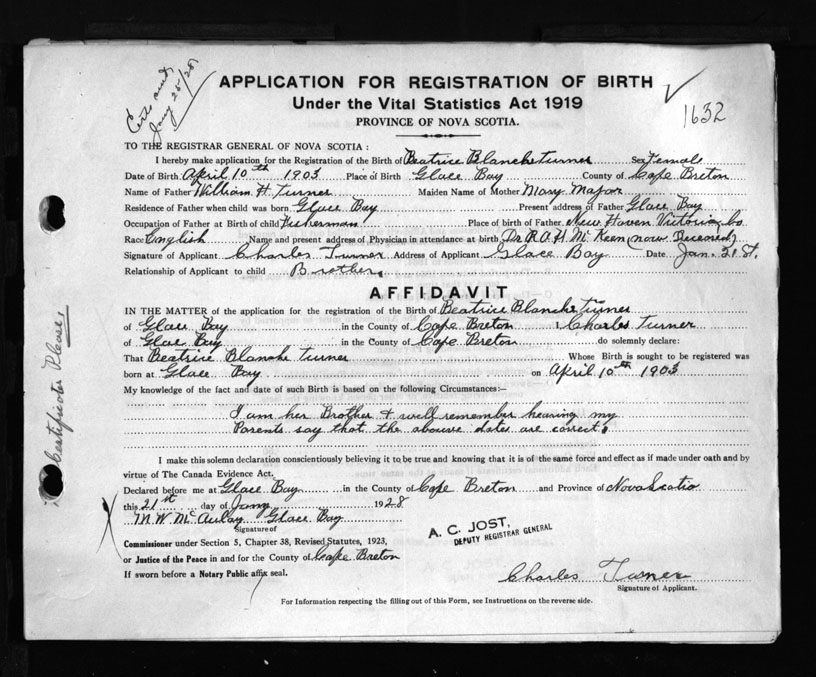 Certs sent
Jany 25/28
APPLICATION FOR REGISTRATION OF BIRTH
Under the Vital Statistics Act 1919
PROVINCE OF NOVA SCOTIA.
1632
TO THE REGISTRAR GENERAL OF NOVA SCOTIA :
I hereby make application for the Registration of the Birth of Beatrice Blanche Turner Sex Female
Date of Birth April 10th 1903 Place of Birth Glace Bay County of Cape Breton
Name of Father William H. Turner Maiden Name of Mother Mary Major
Residence of Father when child was born Glace Bay Present address of Father Glace Bay
Occupation of Father at Birth of child Fisherman Place of birth of Father New Haven Victoria Co
Race English Name and present address of Physician in attendance at birth Dr R.A.H. McKeen, now Deceased
Signature of Applicant Charles Turner Address of Applicant Glace Bay Date Jan. 21st.
Relationship of Applicant to child Brother.
AFFIDAVIT
IN THE MATTER of the application for the registration of the Birth of Beatrice Blanche Turner
of Glace Bay in the County of Cape Breton I, Charles Turner
of Glace Bay in the County of Cape Breton do solemnly declare:
That Beatrice Blanche Turner Whose Birth is sought to be registered was
born at Glace Bay on April 10th 1903
My knowledge of the fact and date of such Birth is based on the following Circumstances:—
I am her Brother & well remember hearing my
Parents say that the abouve dates are correct.
I make this solemn declaration conscientiously believing it to be true and knowing that it is of the same force and effect as if made under oath and by
virtue of The Canada Evidence Act.
Declared before me at Glace Bay in the County of Cape Breton and Province of Nova Scotia
this 21st day of Jany 1928
M. W. McAulay Glace Bay
Signature of
Commissioner under Section 5, Chapter 38, Revised Statutes, 1923,
or Justice of the Peace in and for the County of Cape Breton
If sworn before a Notary Public affix seal.
A. C. JOST,
DEPUTY REGISTRAR GENERAL
Charles Turner
Signature of Applicant.
For Information respecting the filling out of this Form, see Instructions on the reverse side.
Certificate Please.